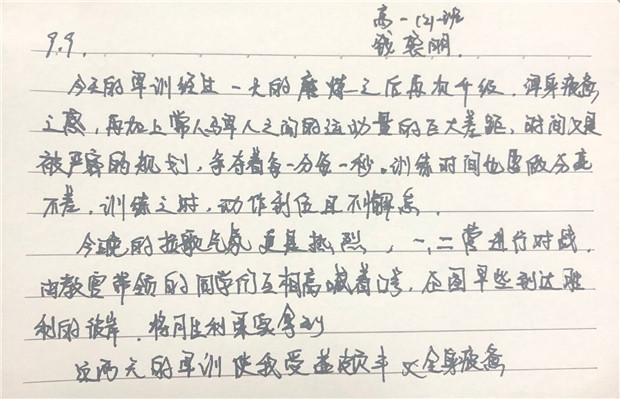 高一(2)班
9.9. 钱 翊
今天的军训经过一天的磨炼之后再有升级，浑身疲惫
之感，再加上常人与军人之间的运动量的巨大差距，时间又是
被严密的规划，争夺着每一分每一秒。训练时间也要做分毫
不差，训练之时，动作到位且不懈怠。
今晚的拉歌气氛更是热烈，一、二营进行对战，
由教官带领的同学们互相高喊着口号，企图早些到达胜
利的彼岸，将胜利果实拿到
这两天的军训使我受益颇丰又全身疲惫